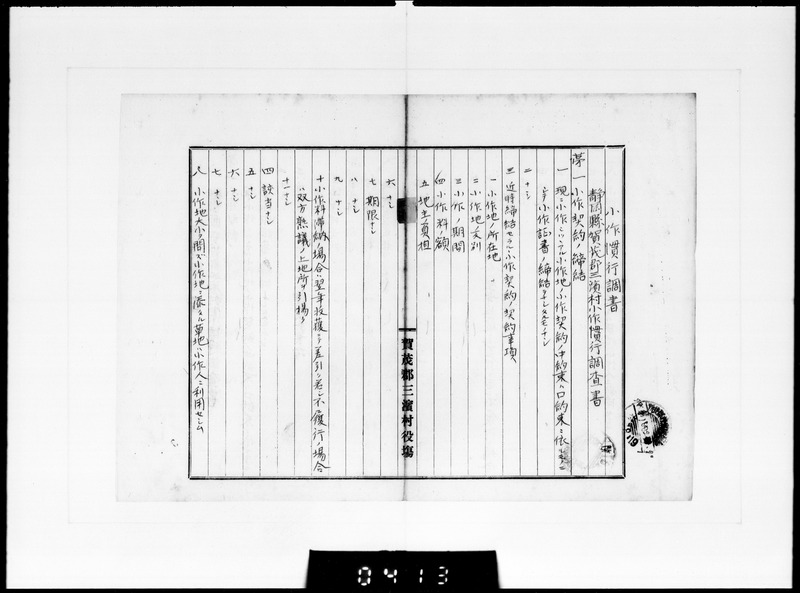 小作慣行調書
静岡縣賀茂郡三濱村小作慣行調査書
第一 小作契約ノ締結
一 現ニ小作シツヽアル小作地ノ小作契約中約束ハ口約束ニ依ル
小作証書ノ締結ヲナシタルモノナシ
二 ナシ
三 近時締結セラルヽ小作契約ノ契約事項
一 小作地ノ所在地
二 小作地ノ反別
三 小作ノ期間
四 小作料ノ額
五 地主負担
賀茂郡三濱村役塲
六 ナシ
七 期限ナシ
八 ナシ
九 ナシ
十 小作料滞納ノ場合ハ翌年收穫ニテ差引シ若シ不履行ノ場合
ハ双方熟議ノ上地所ヲ引揚ク
十一 ナシ
四 該当ナシ
五 ナシ
六 ナシ
七 ナシ
八 小作地大小ヲ問ハズ小作地ニ添タル草地ハ小作人ニ利用セシム
0413